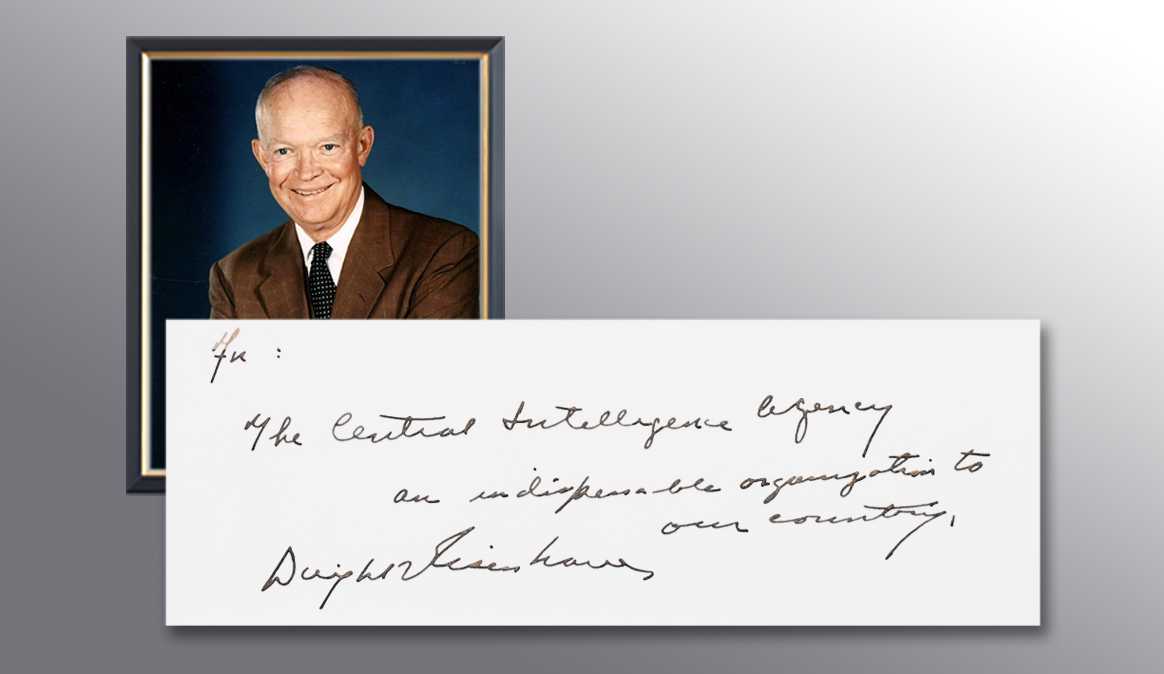 For :
The Central Intelligence Agency
an indispensable organization to
our country.
Dwight D Eisenhower